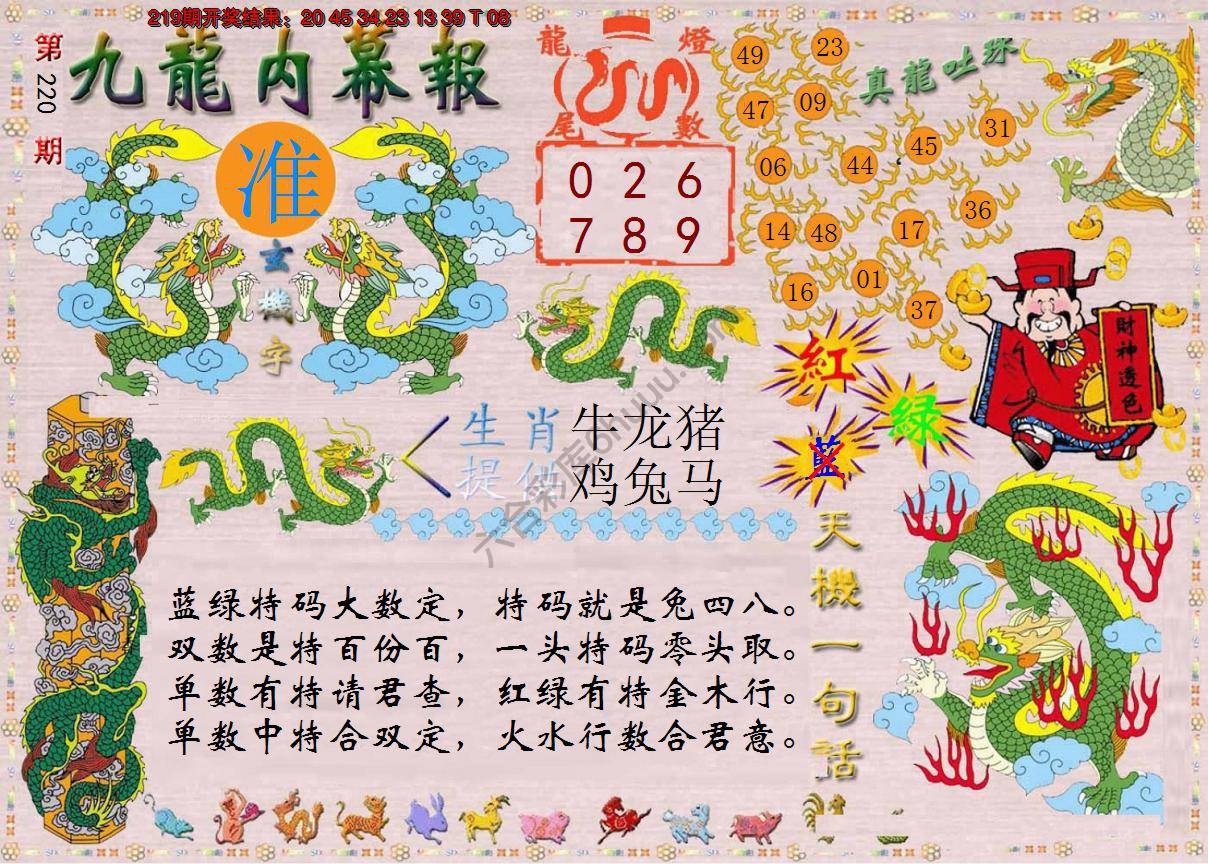 219期开奖结果：20 45 34 23 13 39 T 08
第220期
九龍内幕報
准
玄機字
龍燈
尾數
0 2 6
7 8 9
真龍吐珠
49 23
47 09
45 31
06 44
36
14 48 17
16 01
37
財神透色
紅
綠
藍
生肖 牛龙猪
提供 鸡兔马
六合彩库
天機一句話
蓝绿特码大数定，特码就是兔四八。
双数是特百份百，一头特码零头取。
单数有特请君查，红绿有特金木行。
单数中特合双定，火水行数合君意。